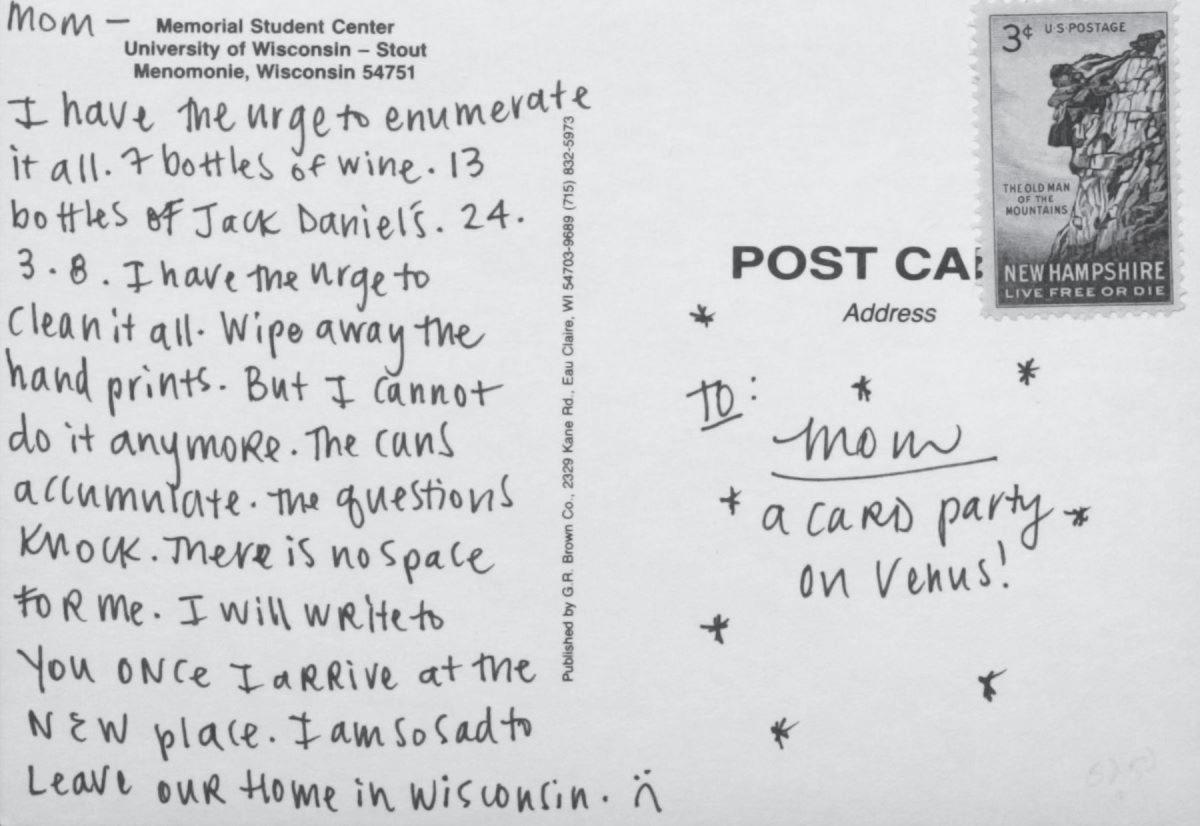 Mom —
Memorial Student Center
University of Wisconsin – Stout
Menomonie, Wisconsin 54751
I have the urge to enumerate
it all. 7 bottles of wine. 13
bottles of Jack Daniel's. 24.
3. 8. I have the urge to
clean it all. Wipe away the
hand prints. But I cannot
do it anymore. The cans
accumulate. The questions
knock. There is no space
for me. I will write to
you once I arrive at the
new place. I am so sad to
leave our home in Wisconsin. :(
Published by G.R. Brown Co., 2329 Kane Rd., Eau Claire, WI 54703-9689 (715) 832-5973
3¢ U·S·POSTAGE
THE OLD MAN
OF THE
MOUNTAINS
NEW HAMPSHIRE
LIVE FREE OR DIE
POST CA
Address
TO:
Mom
a card party
on Venus!